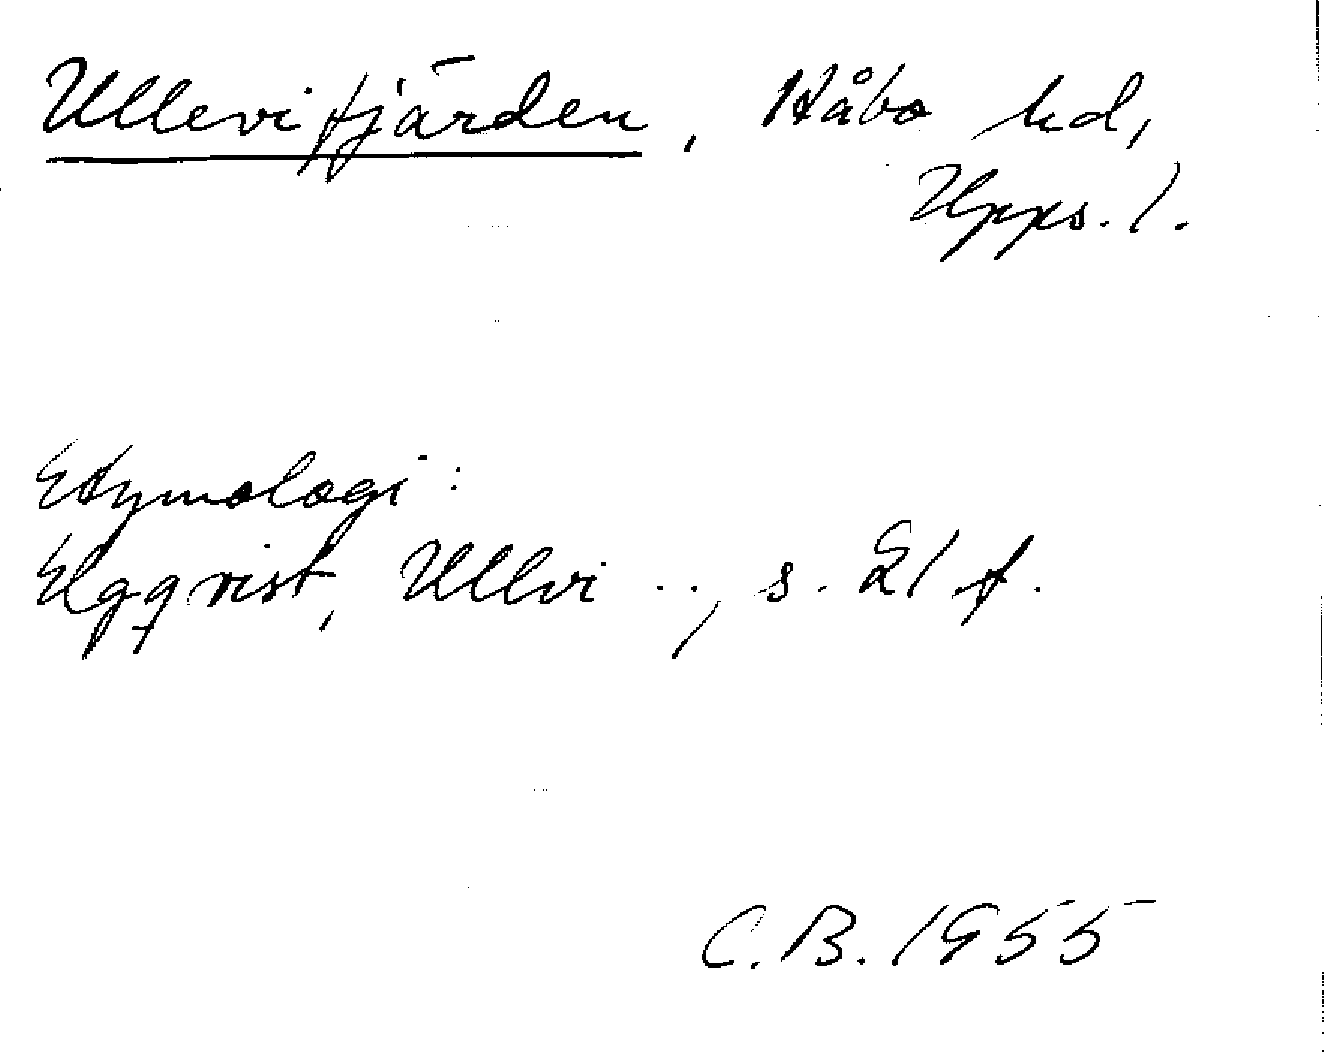 Ullevifjärden, Håbo hd,
Upps. l.
Etymologi:
Elgqvist, Ullvi .., s. 21 f.
C.B. 1955